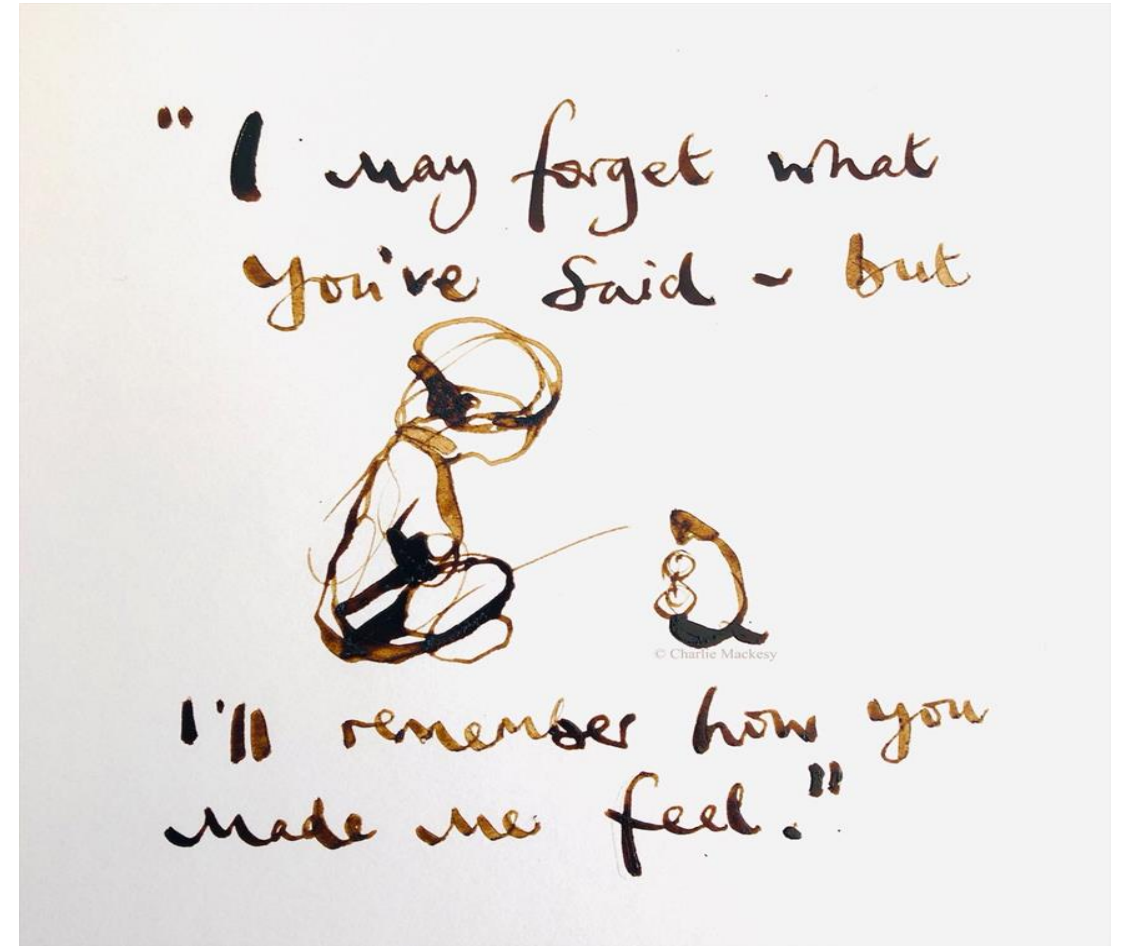 "I may forget what
you've said - but
© Charlie Mackesy
I'll remember how you
made me feel."